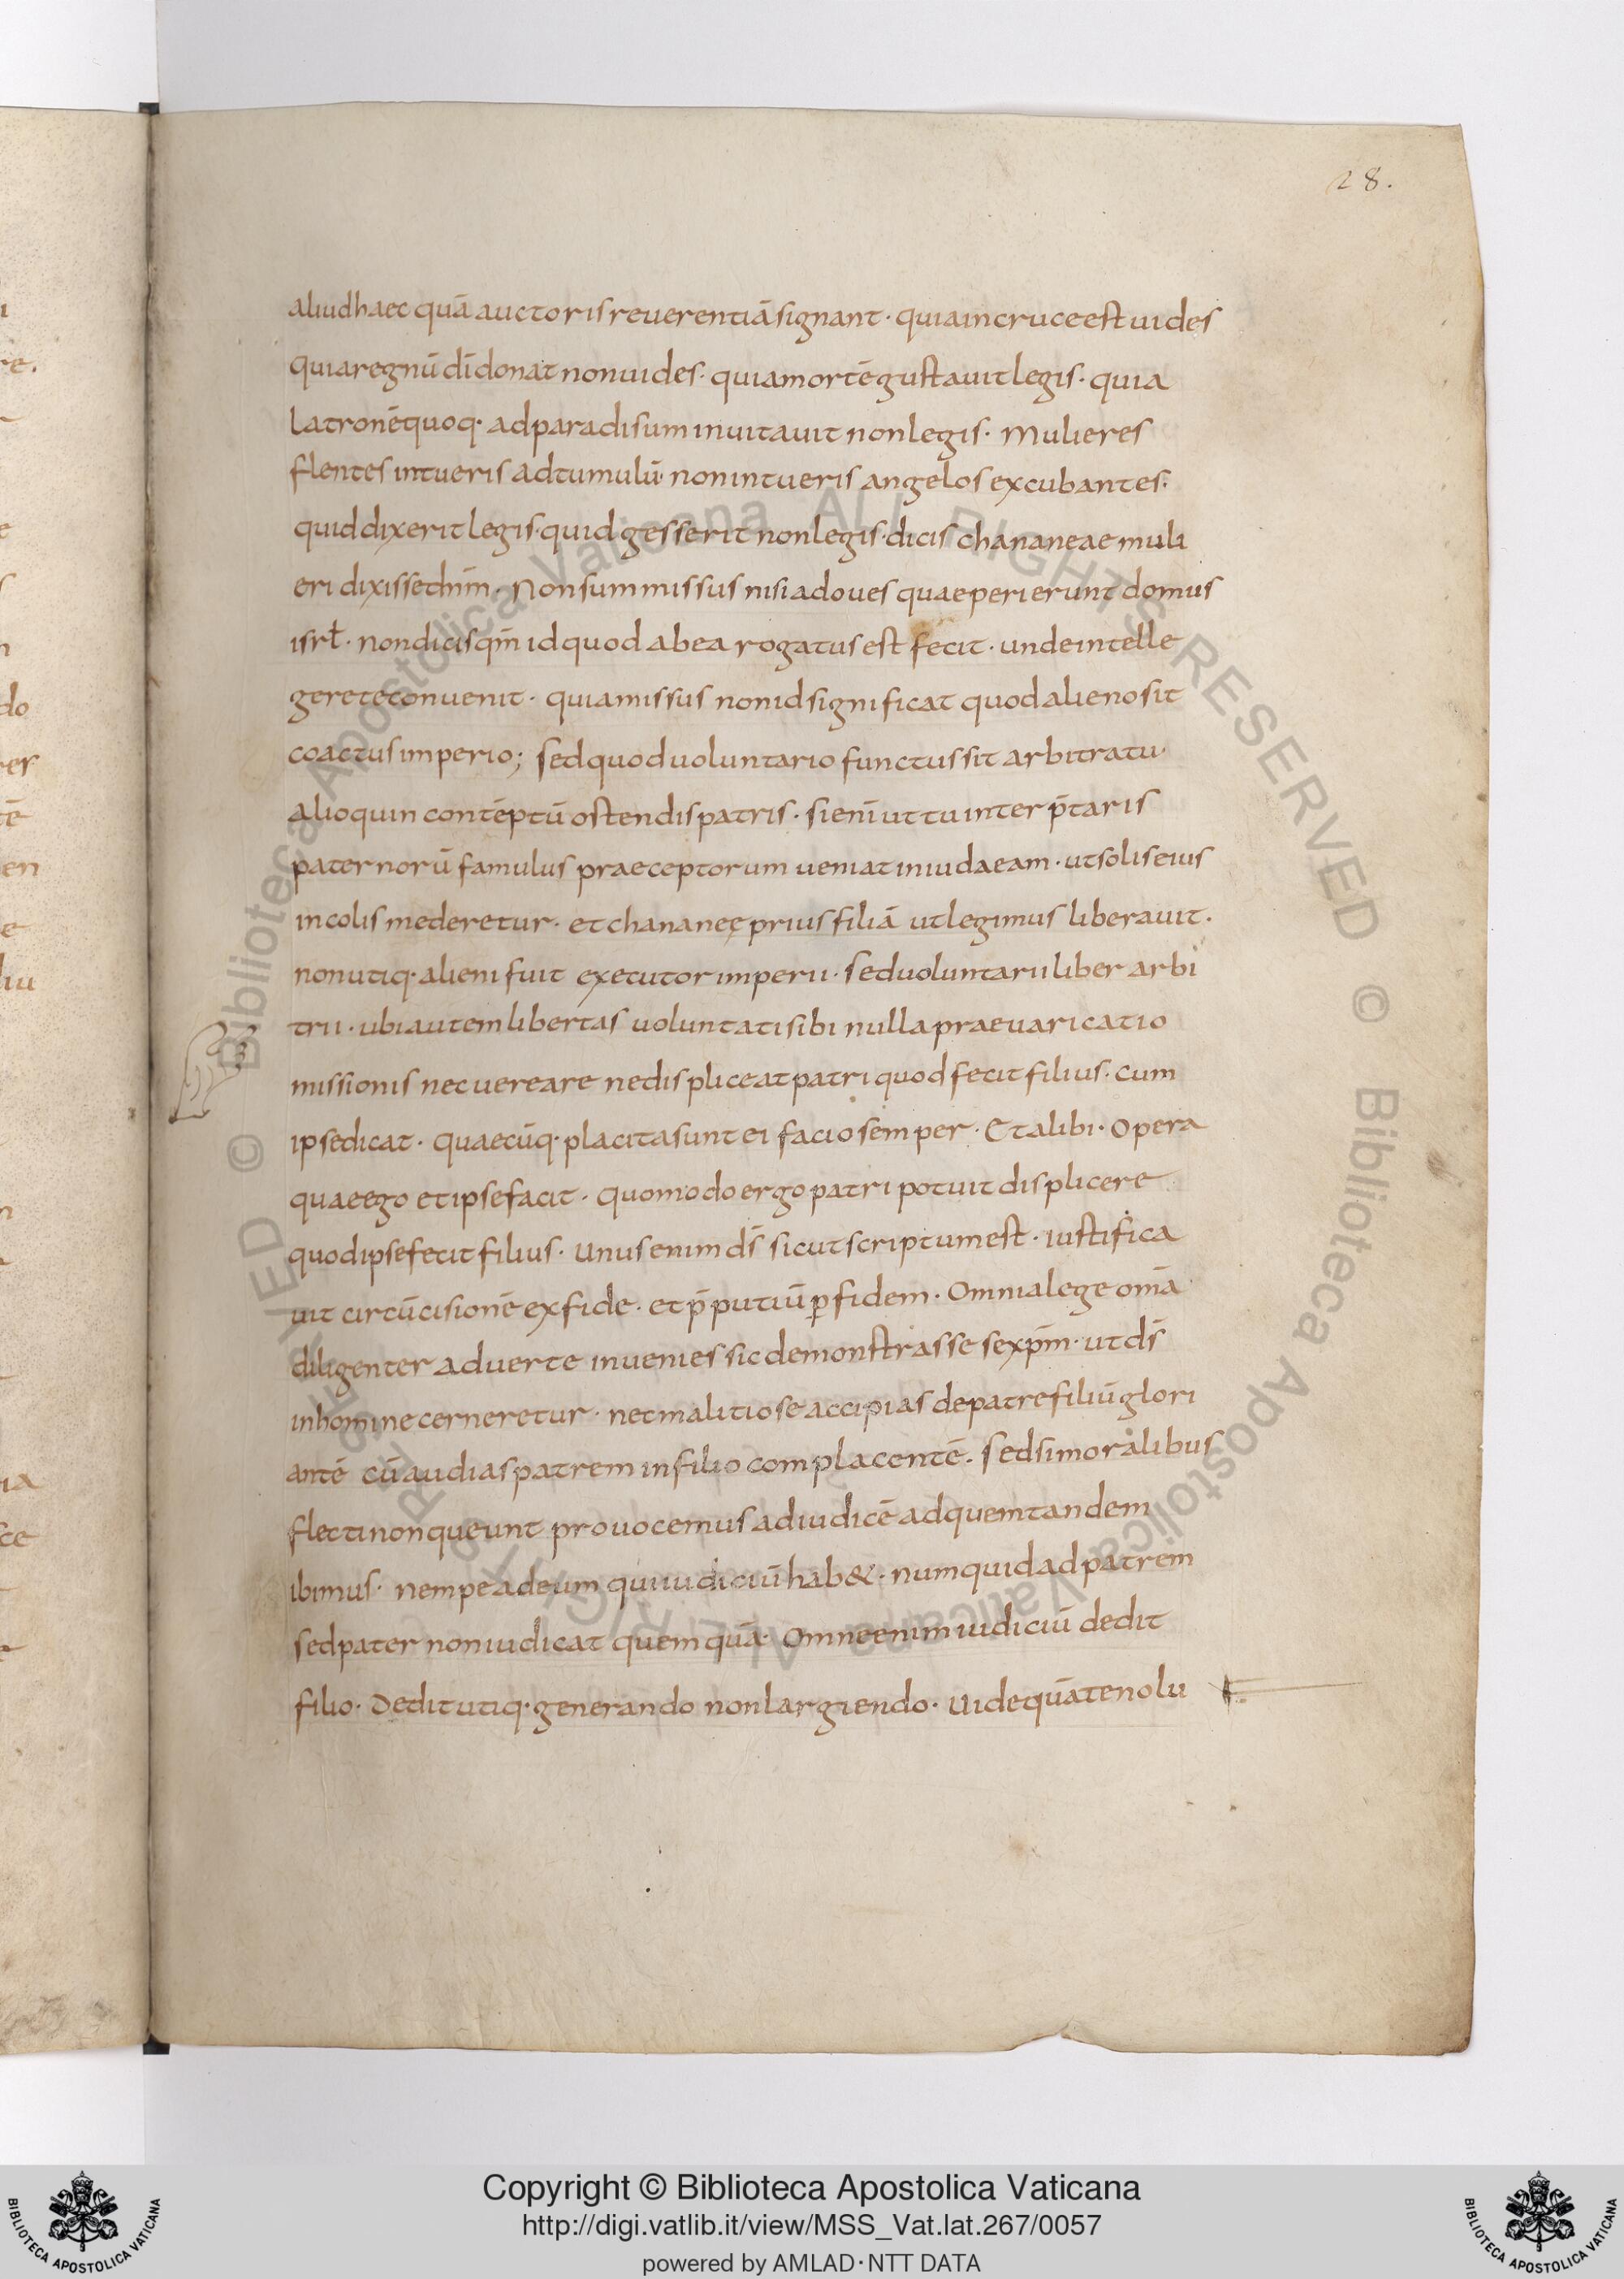 28.
aliud haec quā auctoris reuerentiā signant · quia in cruce est uides
quia regnū dī donat non uides · quia mortē gustauit legis · quia
latronē quoq· ad paradisum inuitauit non legis · Mulieres
flentes intueris ad tumulū non intueris angelos excubantes·
quid dixerit legis · quid gesserit non legis · dicis chananeae muli
eri dixisse dnm̄ · Non sum missus nisi ad oues quae perierunt domus
isrł · non dicis qm̄ id quod ab ea rogatus est fecit · unde intelle
gere te conuenit · quia missus non id significat quod alieno sit
coactus imperio; sed quod uoluntario functus sit arbitratu·
alioquin contēptū ostendis patris · si enī ut tu inter p̄taris
paternorū famulus praeceptorum ueniat in iudaeam · ut solis eius
incolis mederetur · et chananeę prius filiā ut legimus liberauit ·
non utiq· alieni fuit executor imperii · sed uoluntarii liber arbi
trii · ubi autem libertas uoluntati sibi nulla praeuaricatio
missionis nec uereare ne displiceat patri quod fecit filius · cum
ipse dicat · quaecūq· placita sunt ei facio semper · Et alibi · Opera
quae ego et ipse facit · Quomodo ergo patri potuit displicere
quod ipse fecit filius · Unus enim ds̄ sicut scriptum est · iustifica
uit circūcisionē ex fide · et p̄putiū ꝑ fidem · Omnia lege om̄a
diligenter aduerte inuenies sic demonstrasse se xpm̄ · ut ds̄
in homine cerneretur · nec malitiose accipias de patre filiū glori
antē cū audias patrem in filio complacentē · sed si moralibus
flecti non queunt prouocemus ad iudicē ad quem tandem
ibimus · nempe ad eum qui iudiciū hab& · numquid ad patrem
sed pater non iudicat quemquā · Omne enim iudiciū dedit
filio · Dedit utiq· generando non largiendo · Uide quā te nolu
Copyright © Biblioteca Apostolica Vaticana
http://digi.vatlib.it/view/MSS_Vat.lat.267/0057
powered by AMLAD · NTT DATA